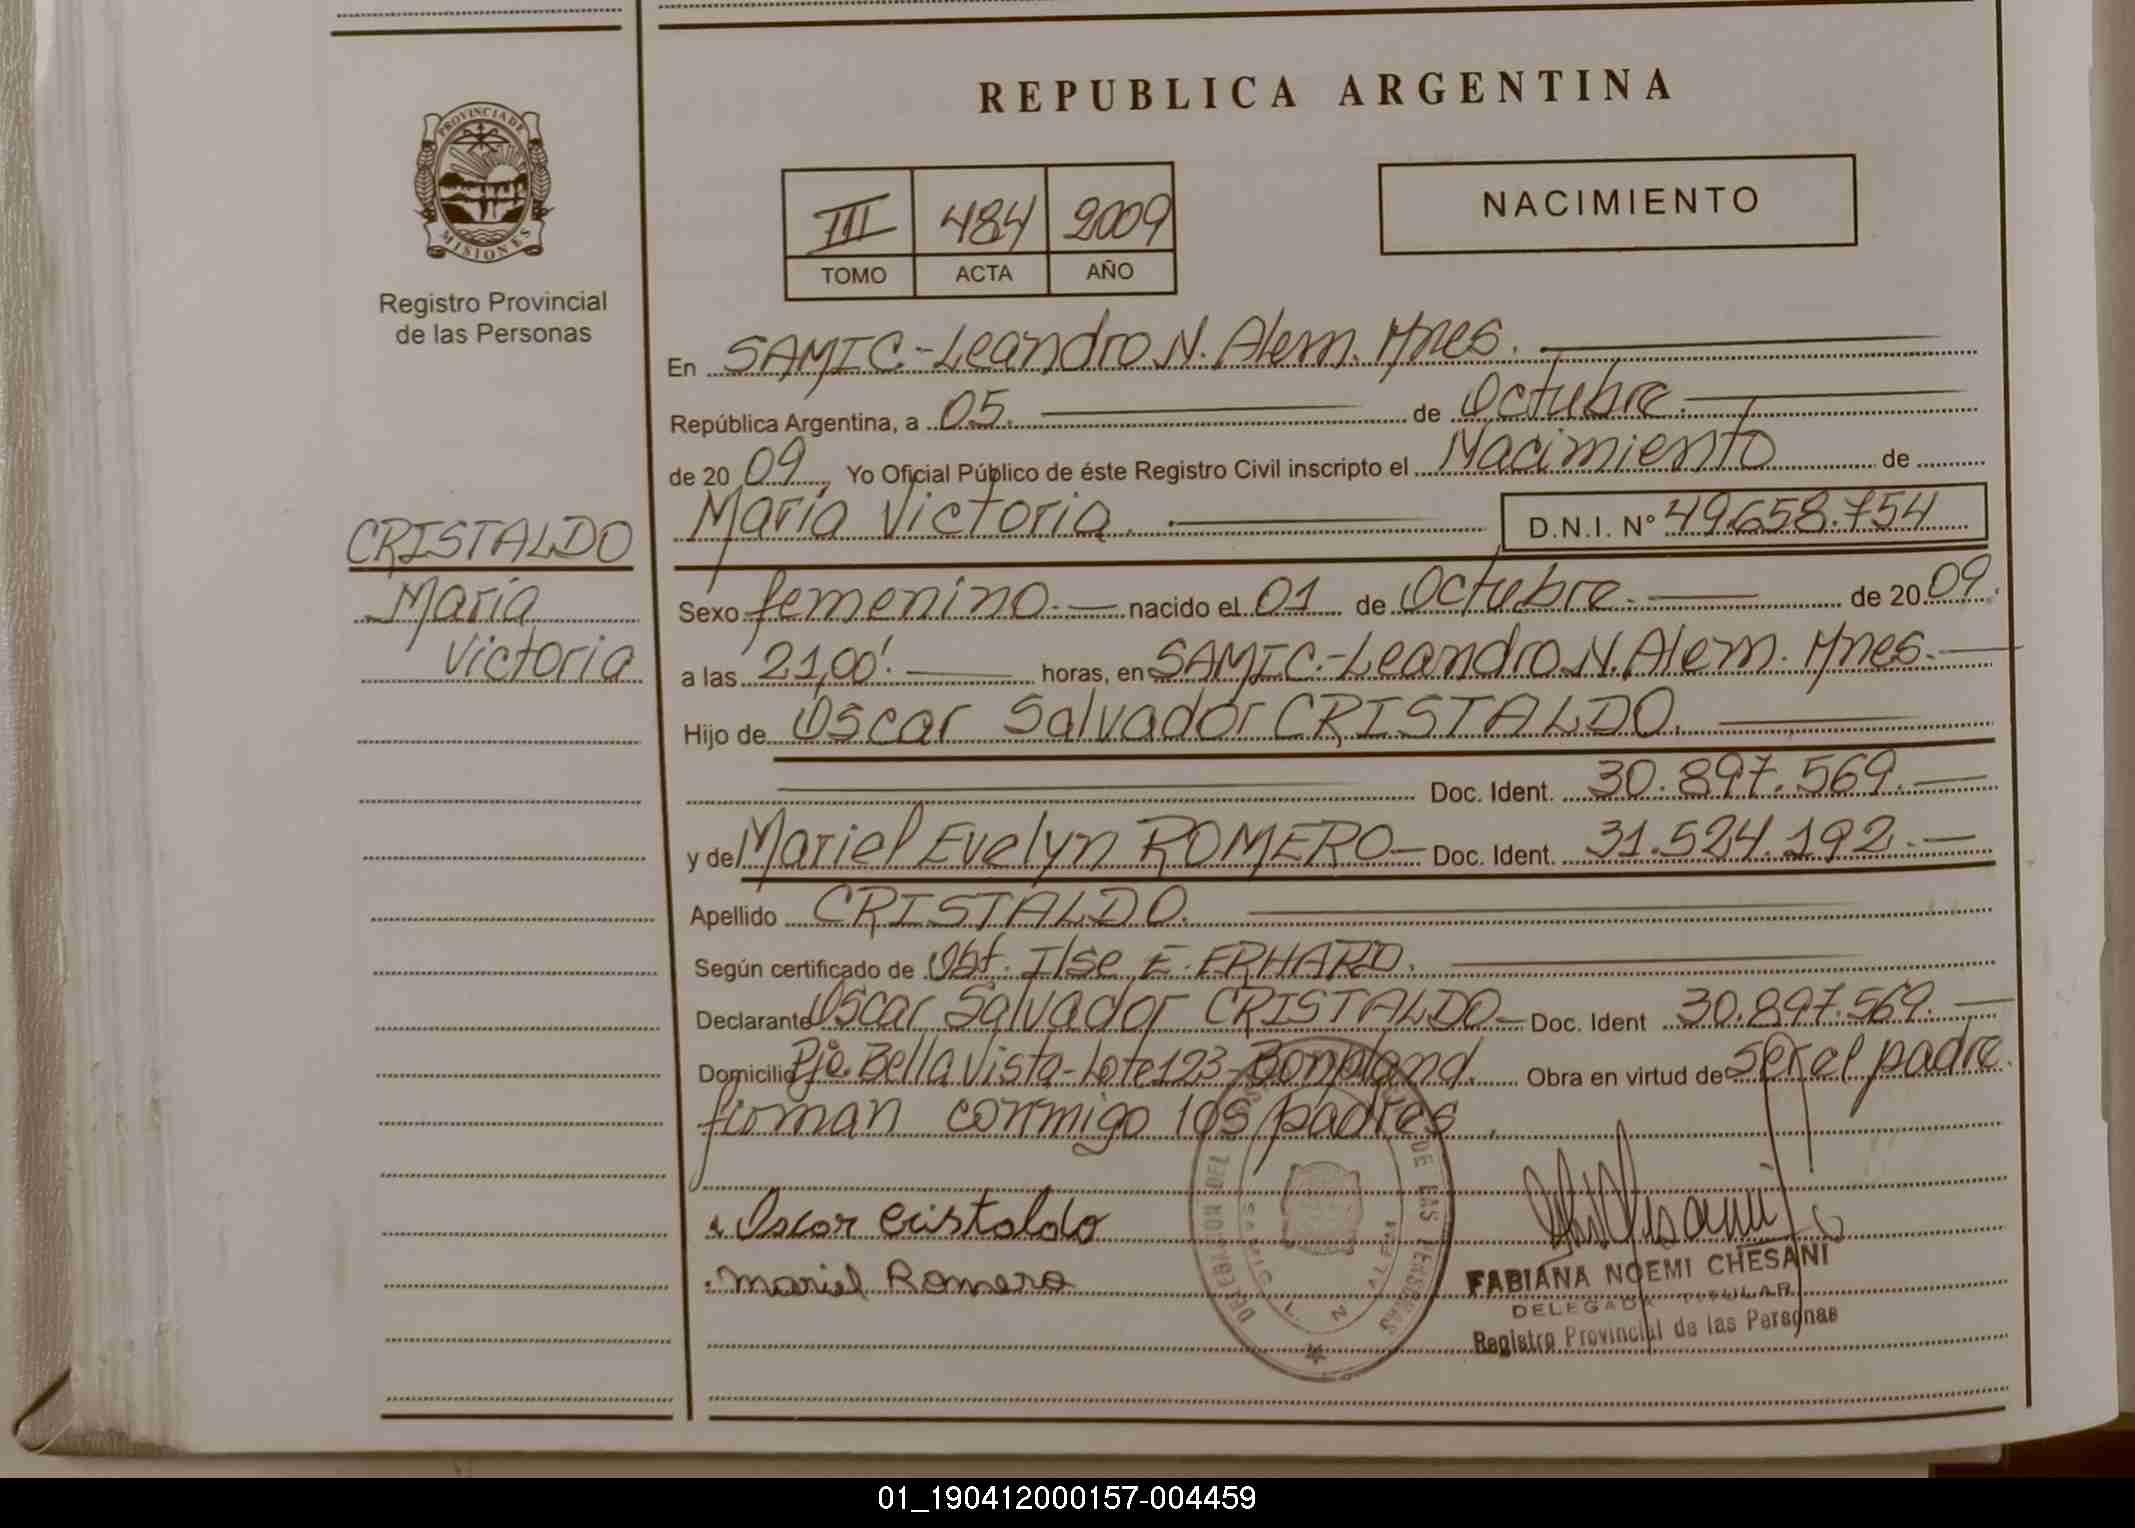 REPUBLICA ARGENTINA
PROVINCIA DE
MISIONES
Registro Provincial
de las Personas
III 484 2009
TOMO ACTA AÑO
NACIMIENTO
En SAMIC.-Leandro N. Alem. Mnes.
República Argentina, a 05. de Octubre.
de 20 09, Yo Oficial Público de éste Registro Civil inscripto el Nacimiento de
María Victoria. D.N.I. N° 49.658.754
CRISTALDO
María
Victoria
Sexo femenino. nacido el 01 de Octubre. de 20 09.
a las 21,00'. horas, en SAMIC.-Leandro N. Alem. Mnes.
Hijo de Oscar Salvador CRISTALDO.
Doc. Ident. 30.897.569.
y de Mariel Evelyn ROMERO Doc. Ident. 31.524.192.
Apellido CRISTALDO.
Según certificado de Obt. Ilse E. ERHARD.
Declarante Oscar Salvador CRISTALDO Doc. Ident 30.897.569.
Domicilio Pje. Bella Vista-Lote 123-Bonpland. Obra en virtud de ser el padre.
firman conmigo los padres.
Oscar Cristaldo
Mariel Romero
DE LAS PERSONAS
FABIANA NOEMI CHESANI
DELEGADA TITULAR
Registro Provincial de las Personas
01_190412000157-004459